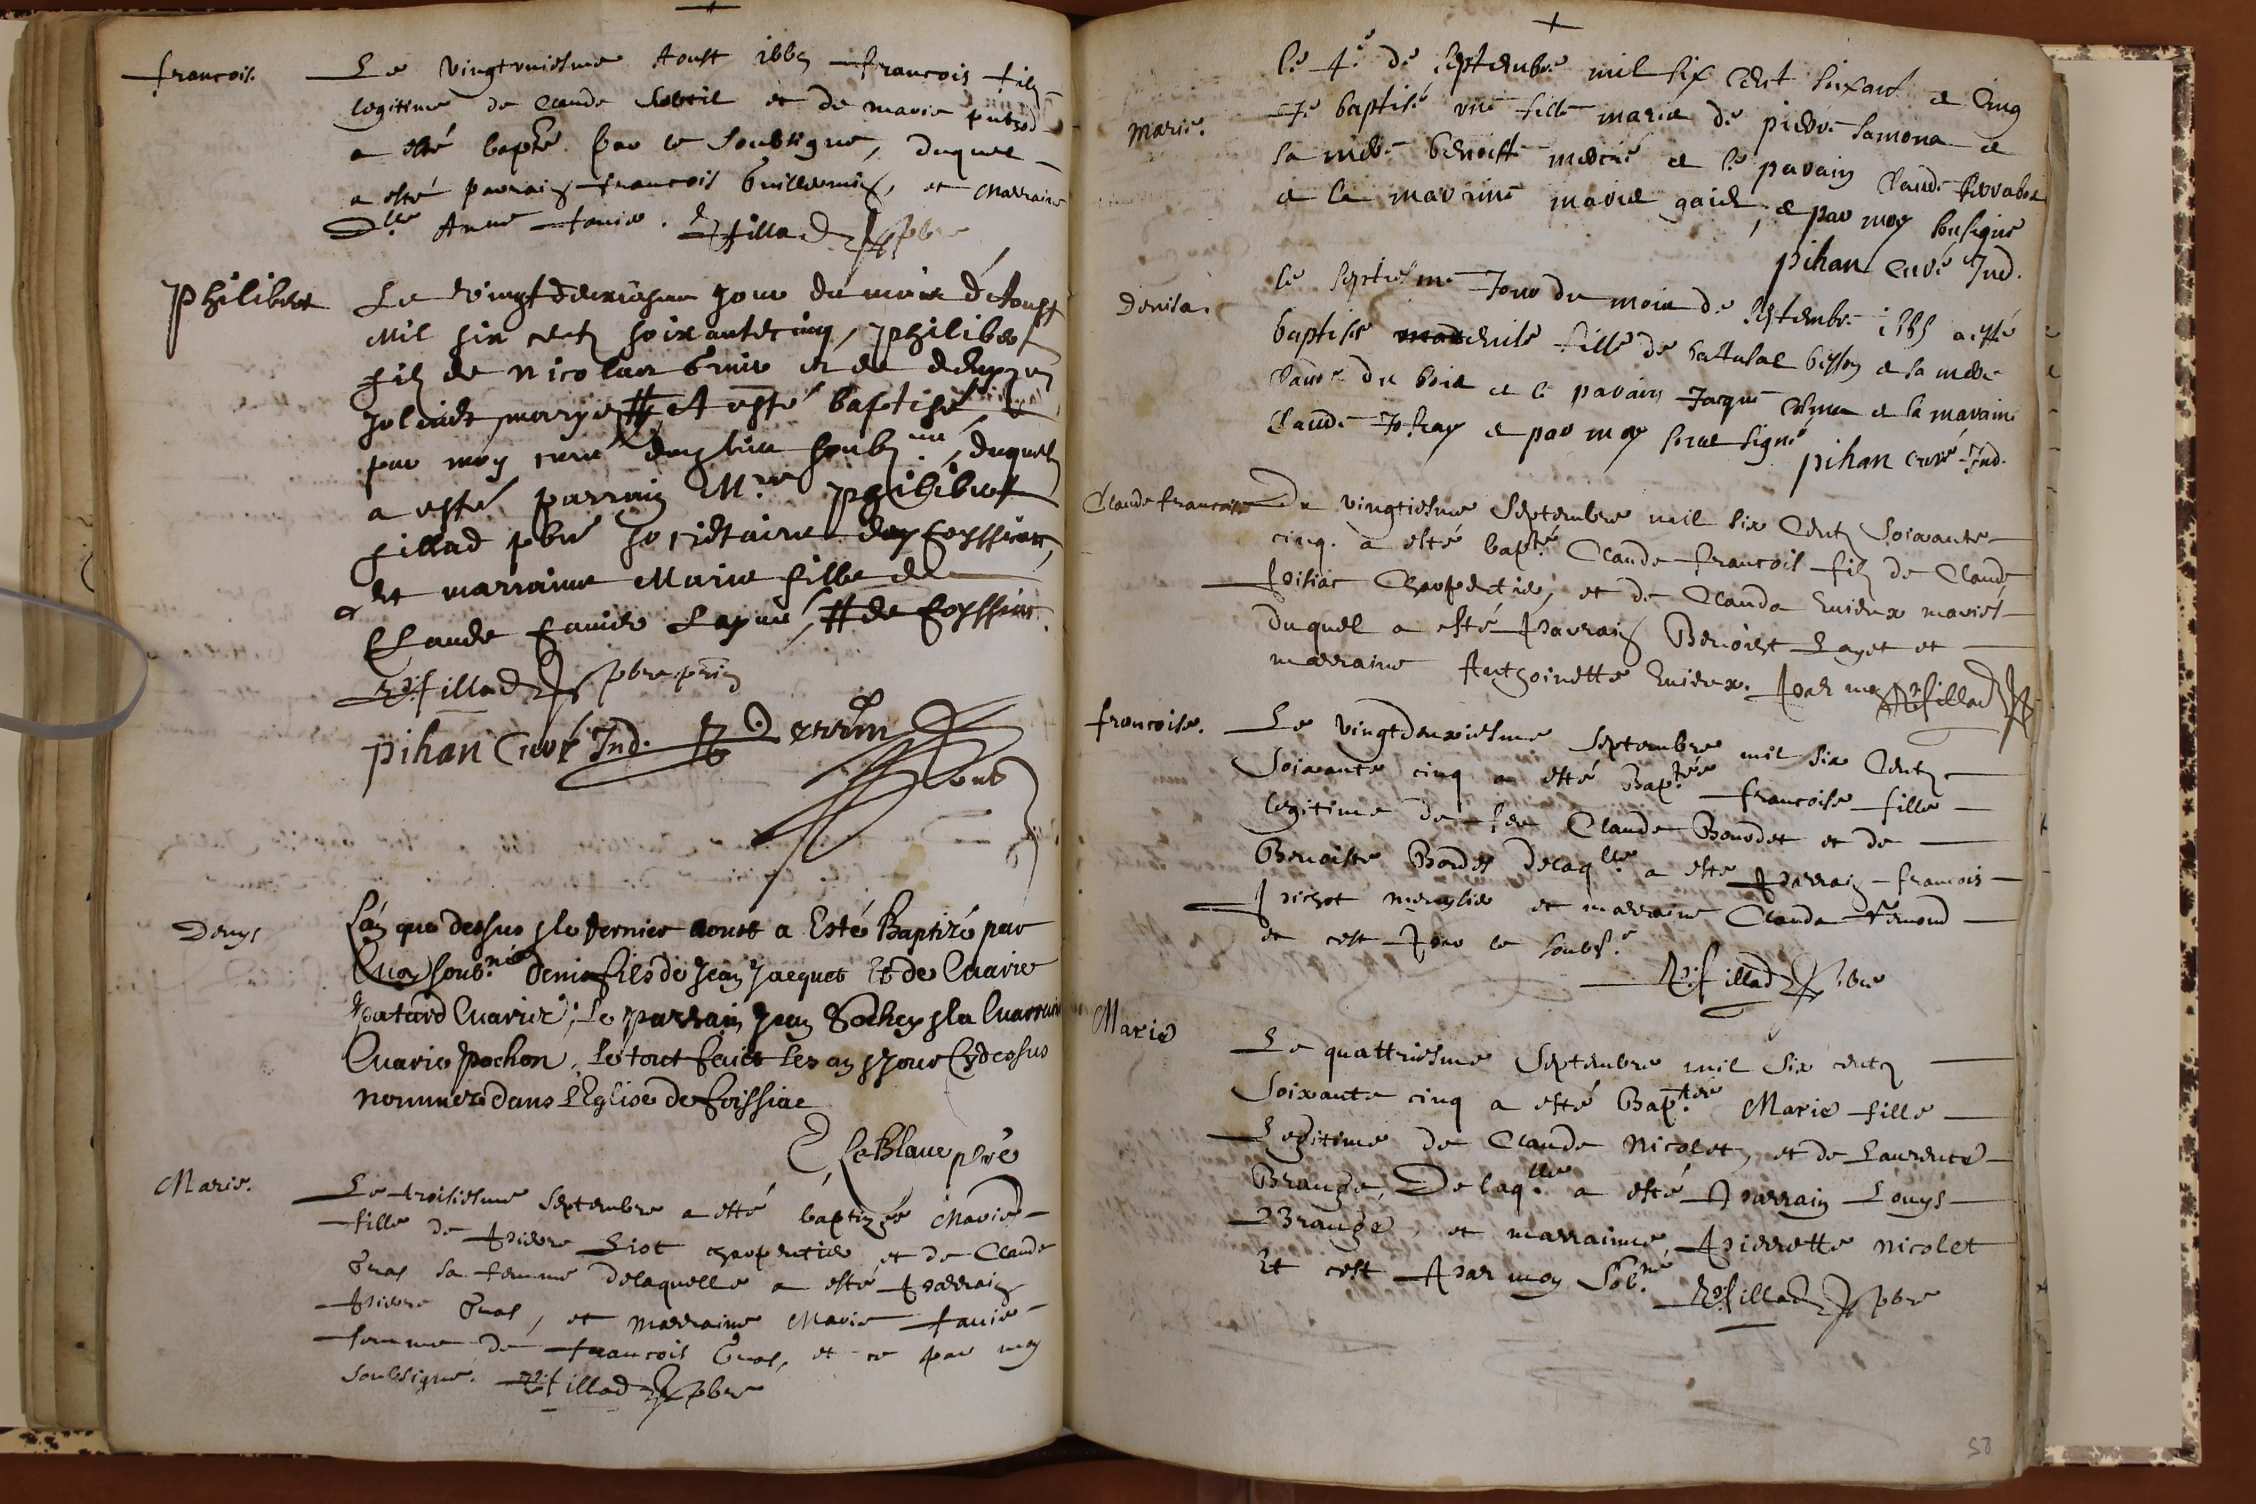 francois.
Le vingtuniesme Aoust 1665 francois filz
legitime de Claude Soleil et de marie
a esté bapté. par le soubsigné, duquel
a esté parrain francois Guillermin, et Marraine
Dlle Anne fauie. Rfillad pbre
Philibert
Le vingtdeuxiesme jour du mois d'Aoust
Mil six centz soixantecinq, Philibert
filz de nicolas et de
mariés # et esté baptisé
par moy curé soubné, duquel
a esté parrain Mre philibert
fillad pbre societaire de Coyssiat,
et marraine Marie fille de
Claude fauier Laîné, # de Foyssiat.
Rfillad pbre prin
pihan Curé Ind.
Denys
L'an que dessus & le dernier aoust a Esté Baptizé par
Moy soubné denis fils de Jean Jacquet Et de Marie
patard Mariés; Le parrain Jean Sochey & la Marraine
Marie pochon, Le tout faict les an & jour Cydessus
nommez Dans L'Eglise de foissiac
LeBlanc pbre
Marie.
Le troisiesme Septembre a esté baptizée Marie
fille de pierre Liot charpentier, et de Claude
Gras sa femme delaquelle a esté parrain
pierre Gras, et marraine Marie fauie
femme de francois Gras, et ce par moy
soubsigné. Rfillad pbre
marie.
le 4e de septembre mil six cent soixant e cinq
Je baptisé une fille marie de pierre Samona e
la mere benoiste e le parain Claude
e la marinne marie , e par moy sousigné
pihan curé Ind.
Denisa.
le septiesme Jour du mois de septembre 1665 a esté
baptisée denise fille de baltasar bisson e la mere
Claude du bois e le parain Jacque e la maraine
Claude e par moy sousigné
pihan curé Ind.
Claude francois
Du vingtiesme Septembre mil six Centz Soixante
cinq. a esté bapté Claude francois filz de Claude
foisiac Charpentier, et de Clauda Enieux mariés
duquel a esté parrain Benoist Laget et
marraine Anthoinette Enieux. par moy Rfillad
francoise.
Le vingtdeuxiesme Septembre mil six Centz
Soixante cinq a esté Baptée francoise fille
legitime de feu Claude Bonodet et de
Benoiste Bordet delaqlle a esté parrain francois
pichot et marraine Clauda
et cest par le soubsé
Rfillad pbre
Marie
Le quattriesme Septembre mil Six centz
Soixante cinq a esté Baptée Marie fille
Legitime de Claude Nicolet, et de Laurence
Brange, De laqlle a esté parrain Louys
Brange, et marrainne, pierrette Nicolet
Et cest par moy Sobné Rfillad pbre
58